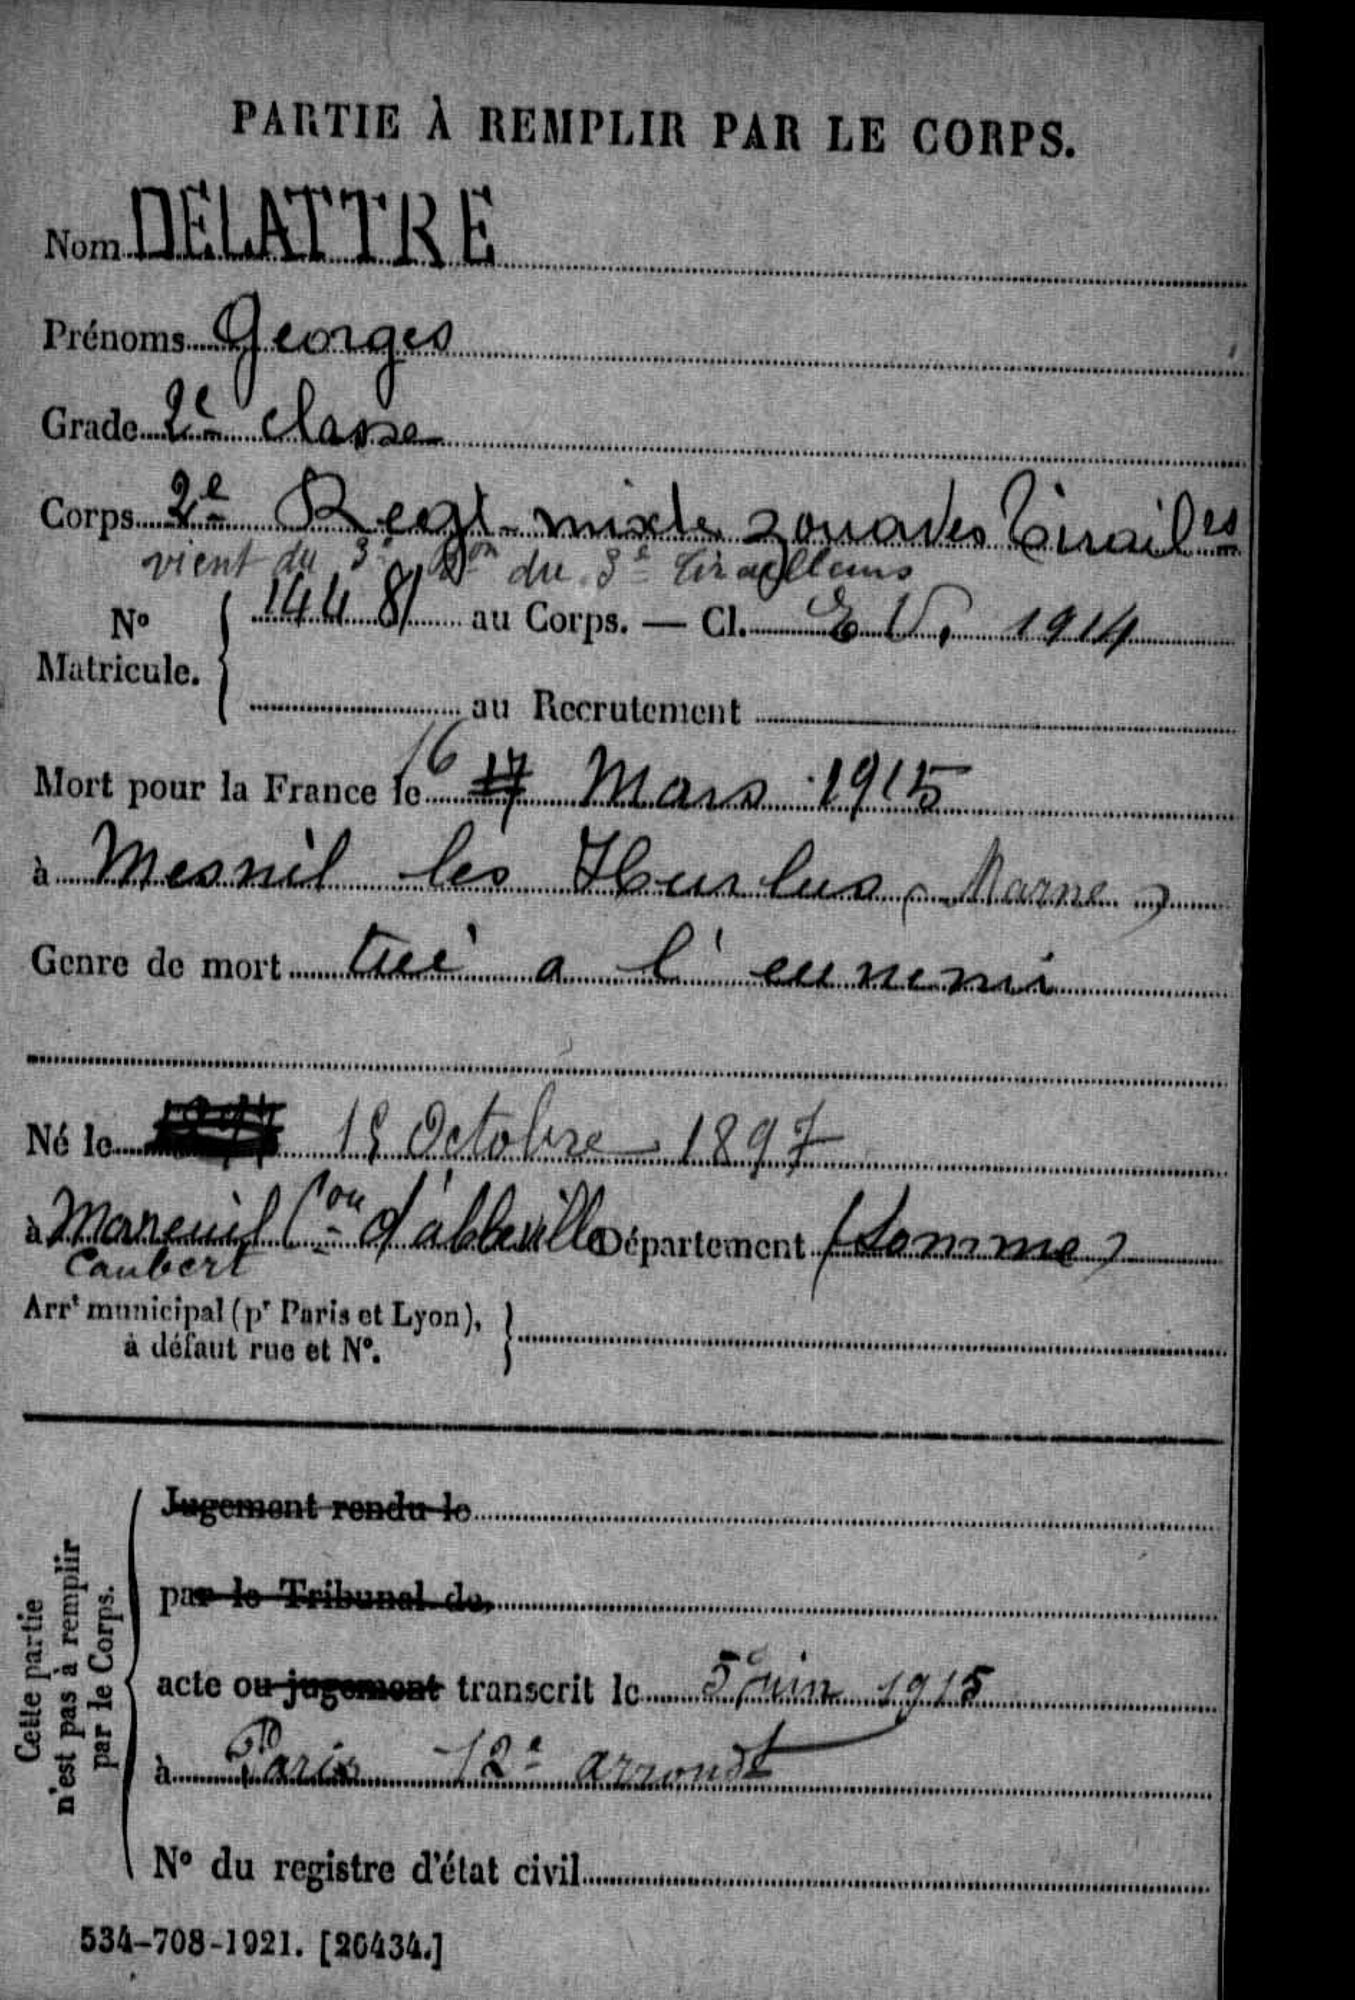 PARTIE À REMPLIR PAR LE CORPS.
Nom DELATTRE
Prénoms Georges
Grade 2e classe
Corps 2e Regt mixte zouaves Tirailrs
vient du 3e Bon du 3e Tirailleurs
No Matricule. { 14481 au Corps. — Cl. E V. 1914
au Recrutement
Mort pour la France le 16 17 Mars 1915
à Mesnil les Hurlus (Marne)
Genre de mort tué a l'ennemi
Né le 15 Octobre 1897
à Mareuil Con d'abbeville Département (Somme)
Caubert
Arrt municipal (pr Paris et Lyon), à défaut rue et No.
Jugement rendu le
par le Tribunal de
acte ou jugement transcrit le 5 juin 1915
à Paris 12e arrondt
No du registre d'état civil
Cette partie n'est pas à remplir par le Corps.
534-708-1921. [26434.]